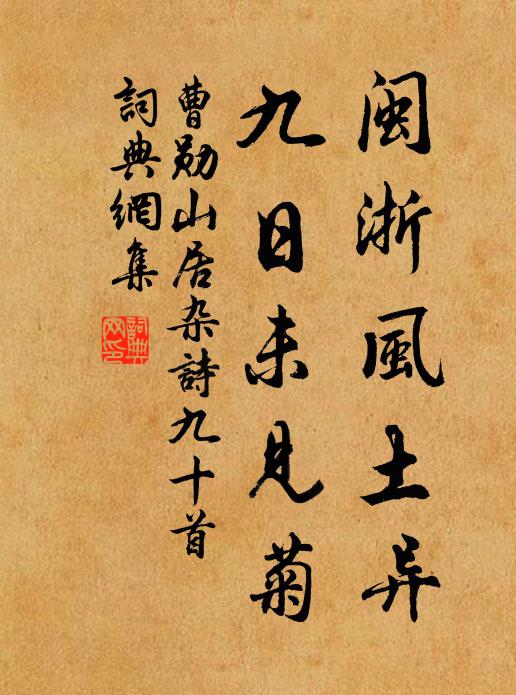 闽浙風土异
九日未見菊
曹勋山居杂詩九十首
詞典網集
詞典
网印